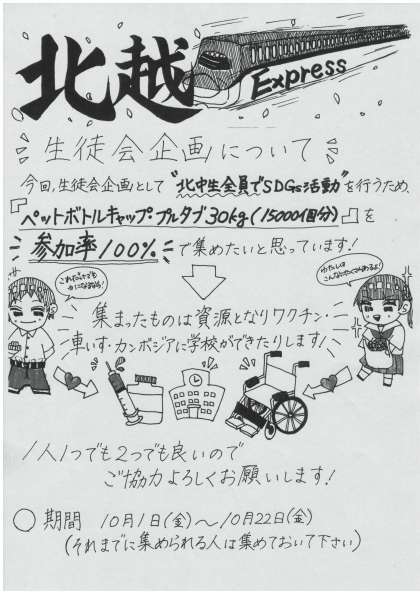 北越
Express
生徒会企画について
今回、生徒会企画として"北中生全員でSDGs活動"を行うため、
『ペットボトルキャップ・プルタブ30kg(15000個分)』を
参加率100%で集めたいと思っています!
集まったものは資源となりワクチン・
車いす・カンボジアに学校ができたりします!
1人1つでも2つでも良いので
ご協力よろしくお願いします!
○期間 10月1日(金)～10月22日(金)
(それまでに集められる人は集めておいて下さい)